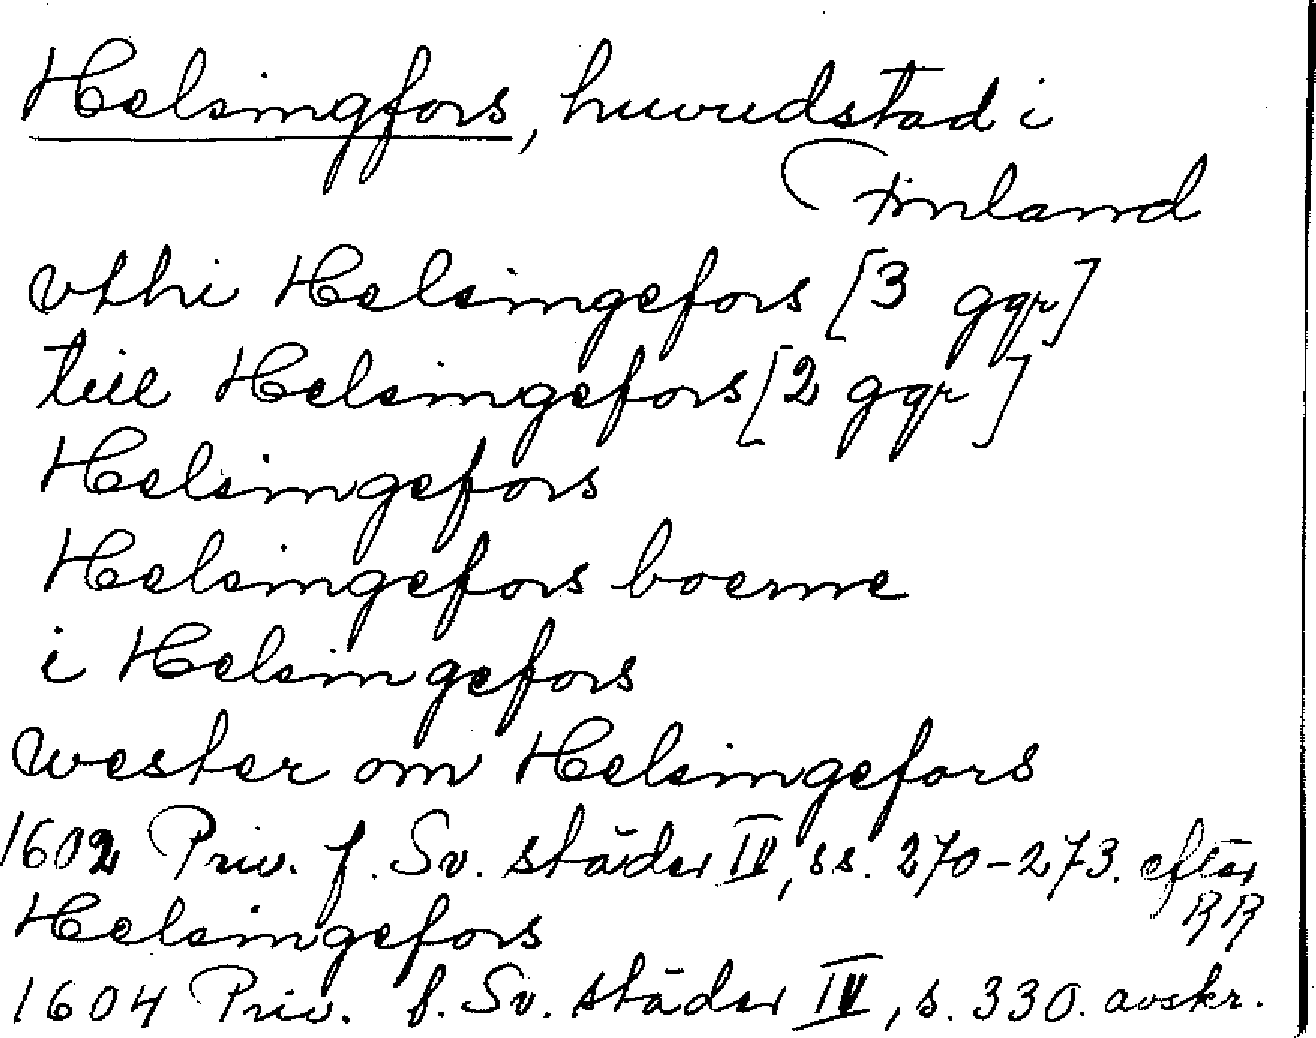 Helsingfors, huvudstad i
Finland
vthi Helsingefors [3 ggr]
till Helsingefors [2 ggr]
Helsingefors
Helsingefors boerne
i Helsingefors
wester om Helsingefors
1602 Priv. f. Sv. städer IV, ss. 270-273. efter
RR
Helsingefors
1604 Priv. f. Sv. städer IV, s. 330. avskr.